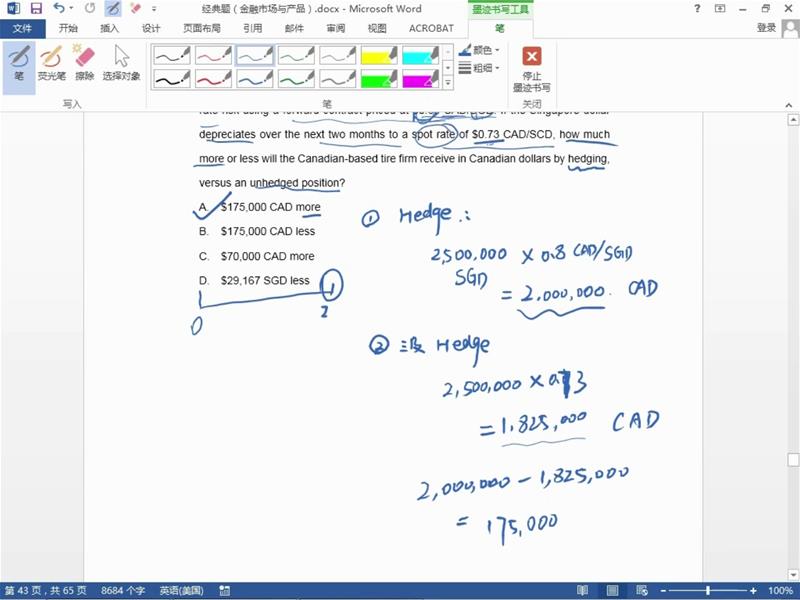 经典题（金融市场与产品）.docx - Microsoft Word
墨迹书写工具
文件 开始 插入 设计 页面布局 引用 邮件 审阅 视图 ACROBAT 笔 登录
笔 荧光笔 擦除 选择对象
颜色
粗细
停止
墨迹书写
写入 笔 关闭
depreciates over the next two months to a spot rate of $0.73 CAD/SCD, how much
more or less will the Canadian-based tire firm receive in Canadian dollars by hedging,
versus an unhedged position?
A. $175,000 CAD more
B. $175,000 CAD less
C. $70,000 CAD more
D. $29,167 SGD less
0 2
① Hedge :
2,500,000 × 0.8 CAD/SGD
SGD
= 2,000,000. CAD
② 没 Hedge
2,500,000 × 0.73
= 1,825,000 CAD
2,000,000 - 1,825,000
= 175,000
第 43 页，共 65 页 8684 个字 英语(美国) 100%